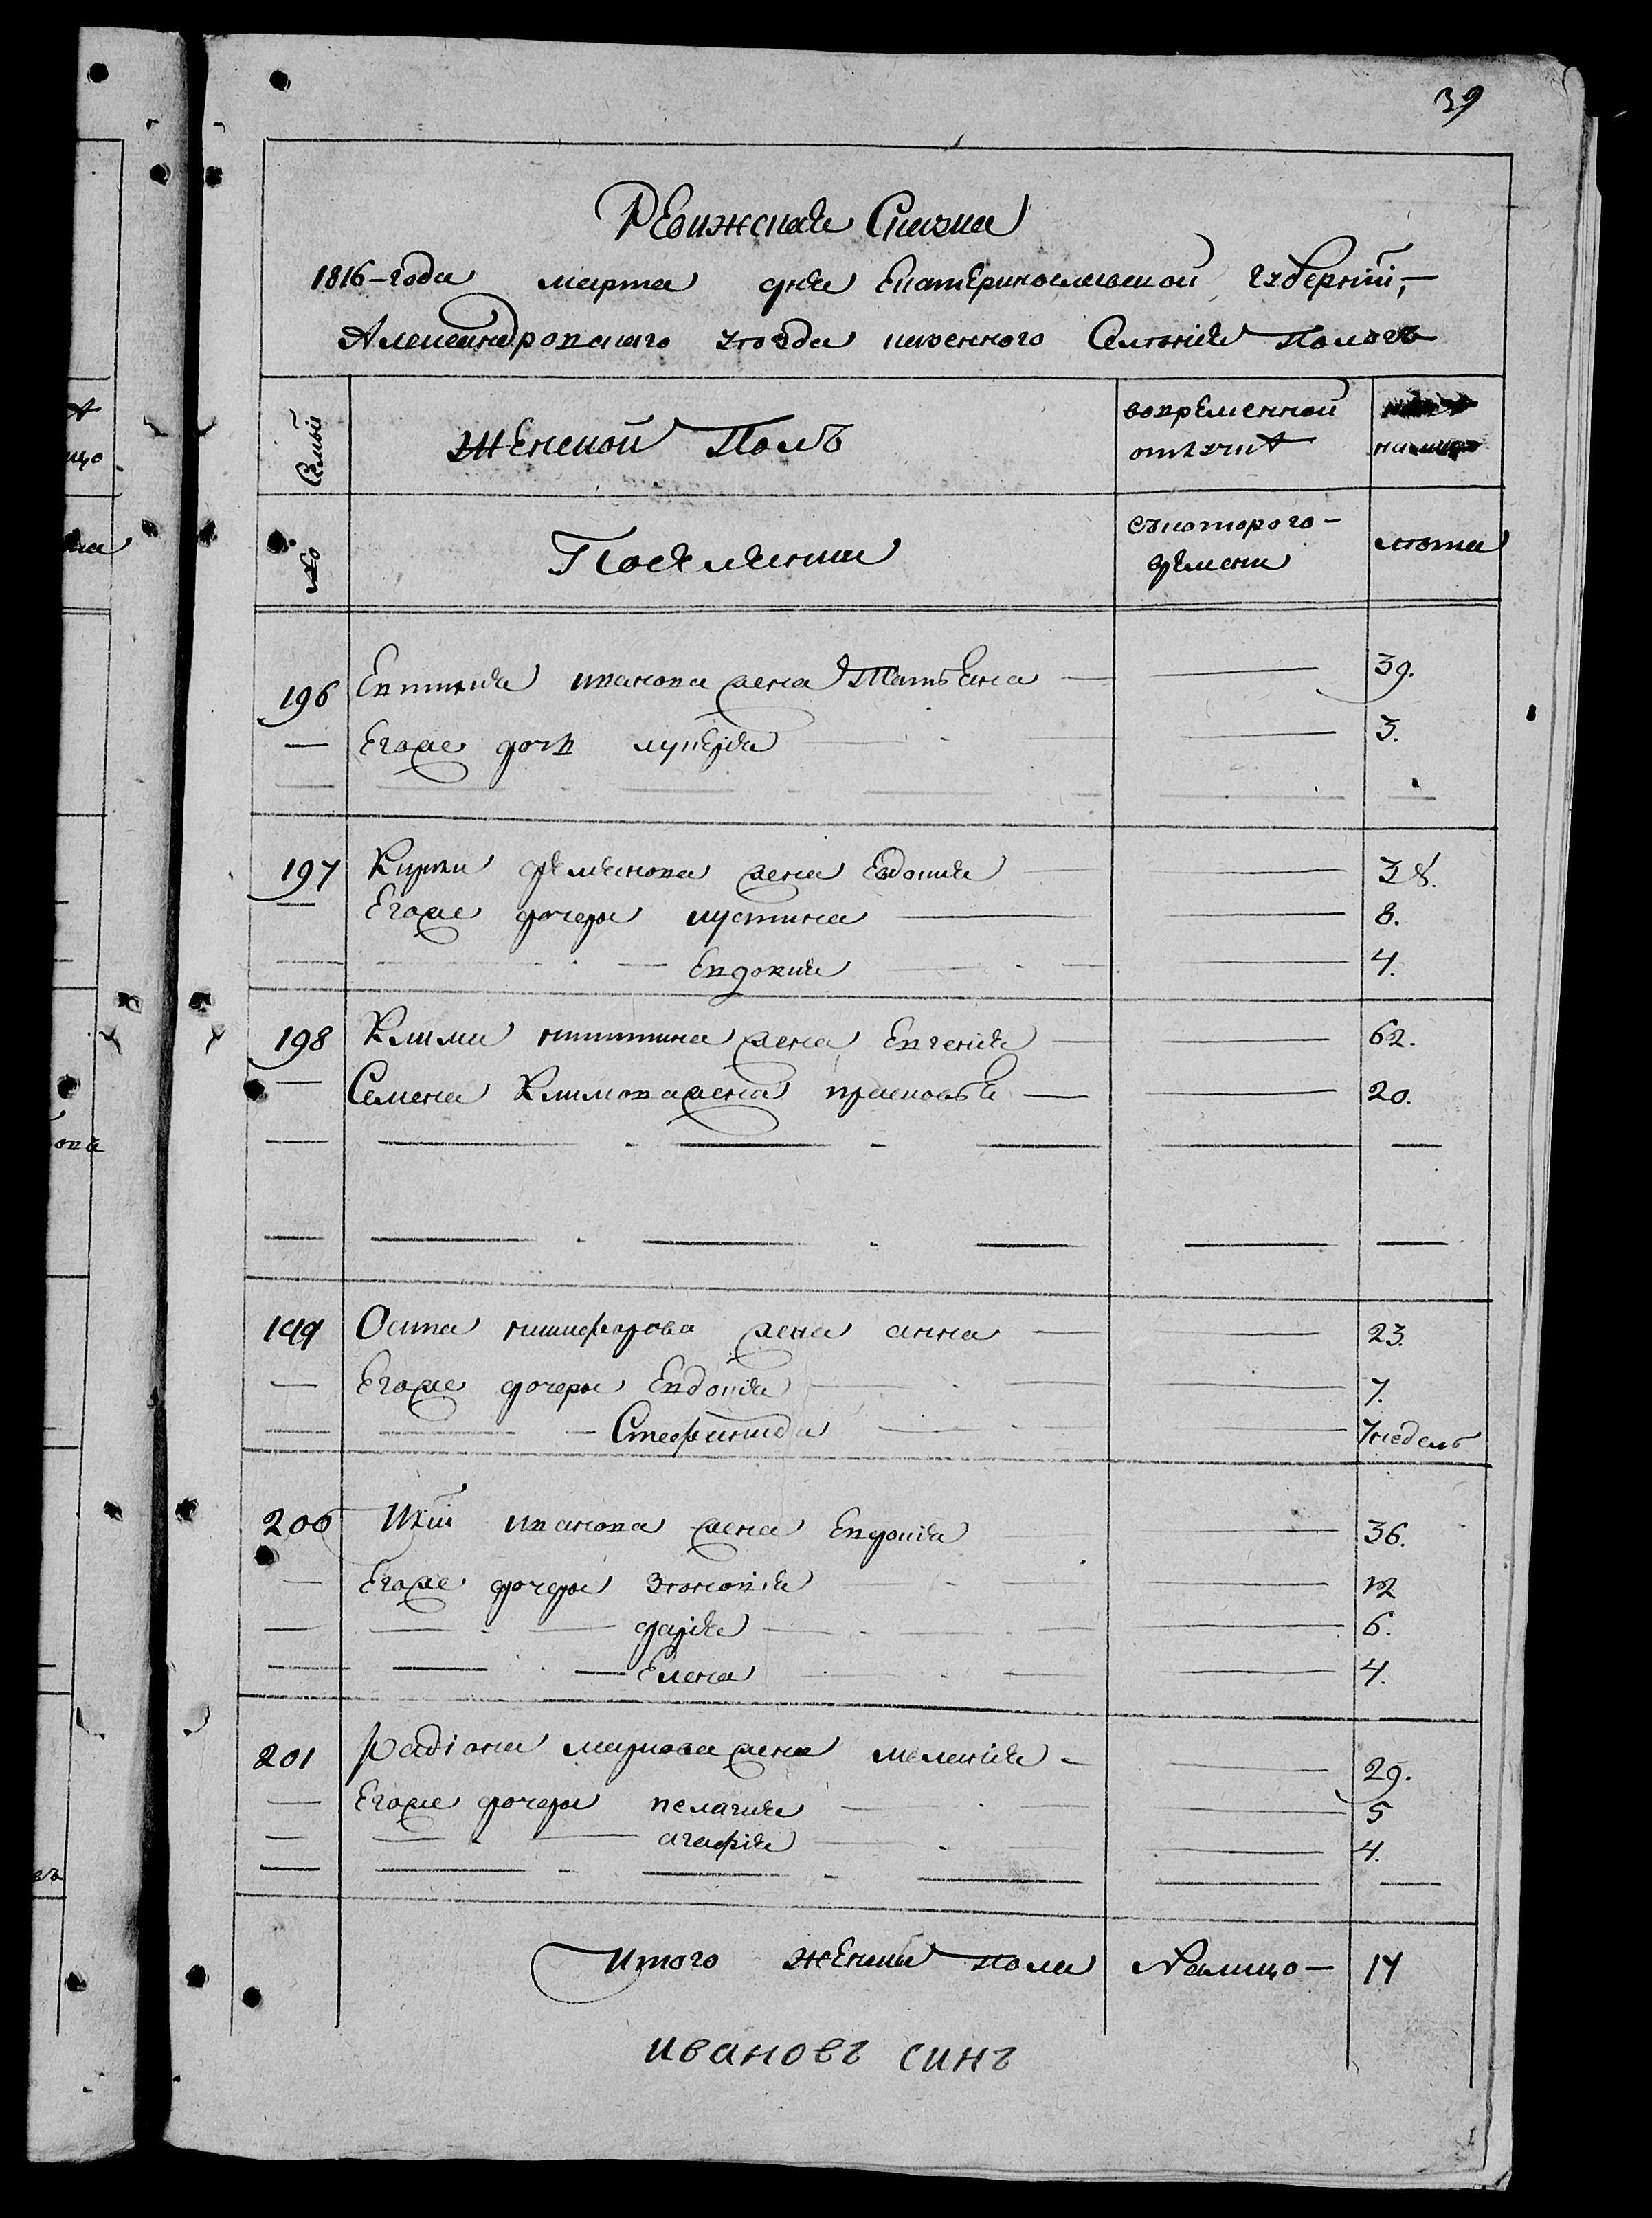 39
РЕвижская Сказка
1816-года марта дня Екатеринославской губернии,
Александровскаго уезда казенного Селения Пологъ
Семьи
женской Полъ
вовременной
отлучкѣ
налицо
№
Поселянки
скоторого-
времени
лета
196 Евтихия иванова жена Татьяна — 39.
— Егоже дочь лукерия — 3.
197 Карпа демянова жена Евдокия — 38.
— Егоже дочери иустина — 8.
— Евдокия — 4.
198 Клима никитина жена Евгения — 62.
— Семена Климова жена прасковья — 20.
199 Осипа никифорова жена анна — 23.
— Егоже дочери Евдокия — 7.
— Стефанида — 7 недель
200 иванова жена Евдокия — 36.
— Егоже дочери — 12
— дария — 6.
— Елена — 4.
201 радиона маркова жена мелания — 29.
— Егоже дочери пелагия — 5
— агафия — 4.
Итого женска пола Налицо — 17
ивановъ синъ